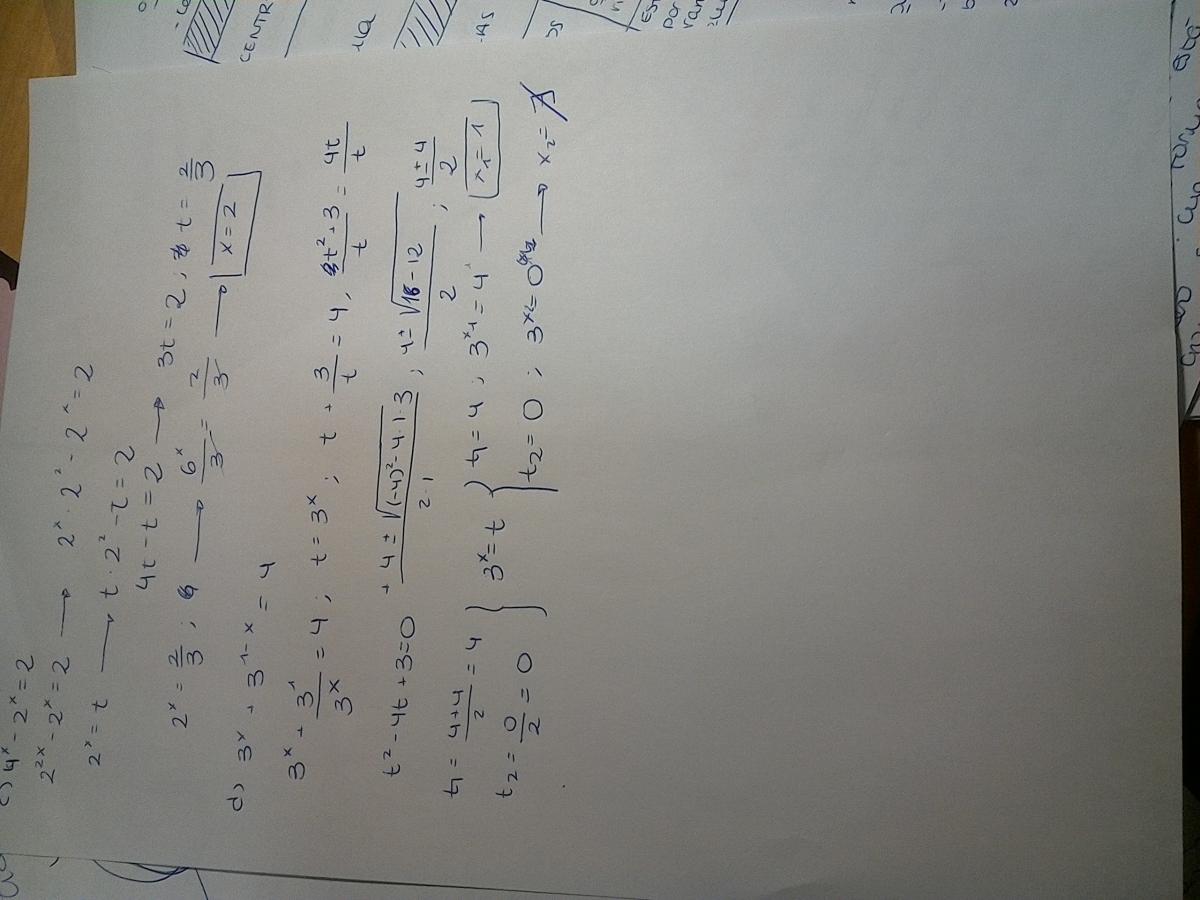 c) 4ˣ - 2ˣ = 2
2²ˣ - 2ˣ = 2 → 2ˣ · 2² - 2ˣ = 2
2ˣ = t → t · 2² - t = 2
4t - t = 2 → 3t = 2 ; t = 2/3
2ˣ = 2/3 ; → 6ˣ/3 = 2/3 → x = 2
d) 3ˣ + 3¹⁻ˣ = 4
3ˣ + 3¹/3ˣ = 4 ; t = 3ˣ ; t + 3/t = 4, t²+3/t = 4t/t
t² - 4t + 3 = 0 + 4 ± √(-4)² - 4·1·3 / 2·1 ; 4 ± √16 - 12 / 2 ; 4 ± 4 / 2
t₁ = 4+4/2 = 4 } 3ˣ = t { t₁ = 4 ; 3ˣ¹ = 4 → x₁ = 1
t₂ = 0/2 = 0 t₂ = 0 ; 3ˣ² = 0 → x₂ = ∄
CENTR